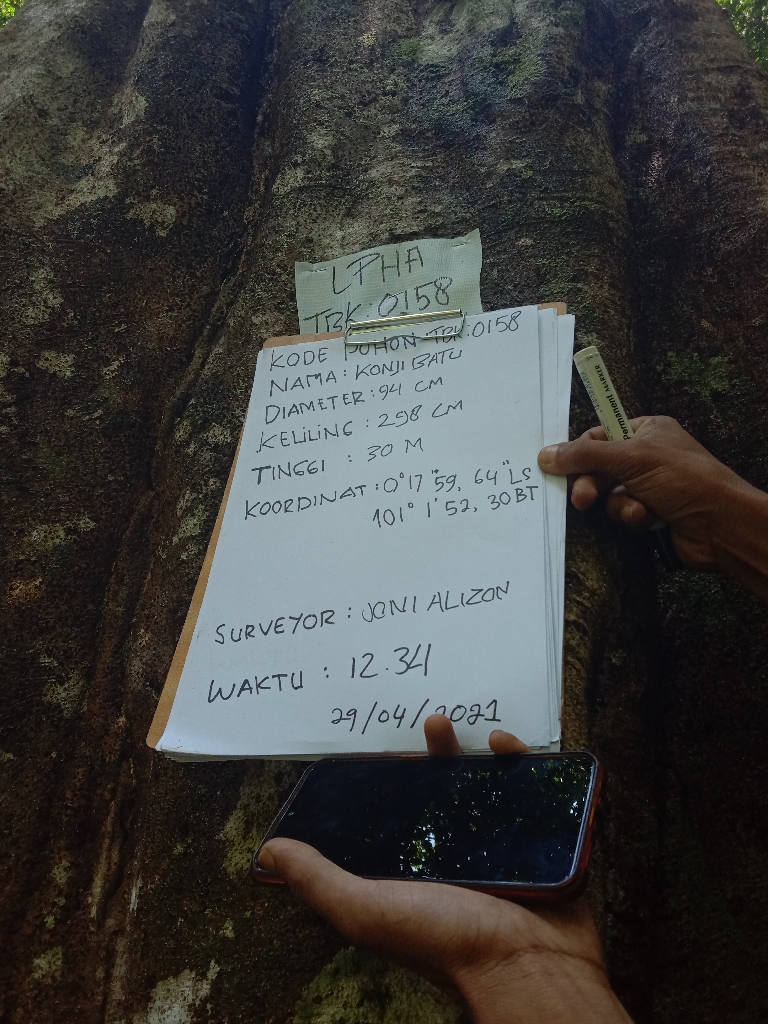 LPHA
TBK:0158
KODE POHON TBK:0158
NAMA: KONJI BATU
DIAMETER: 94 CM
KELILING: 298 CM
TINGGI : 30 M
KOORDINAT: 0°17'59, 64" LS
101° 1'52, 30 BT
SURVEYOR: JONI ALIZON
WAKTU : 12.34
29/04/2021
Permanent MARKER